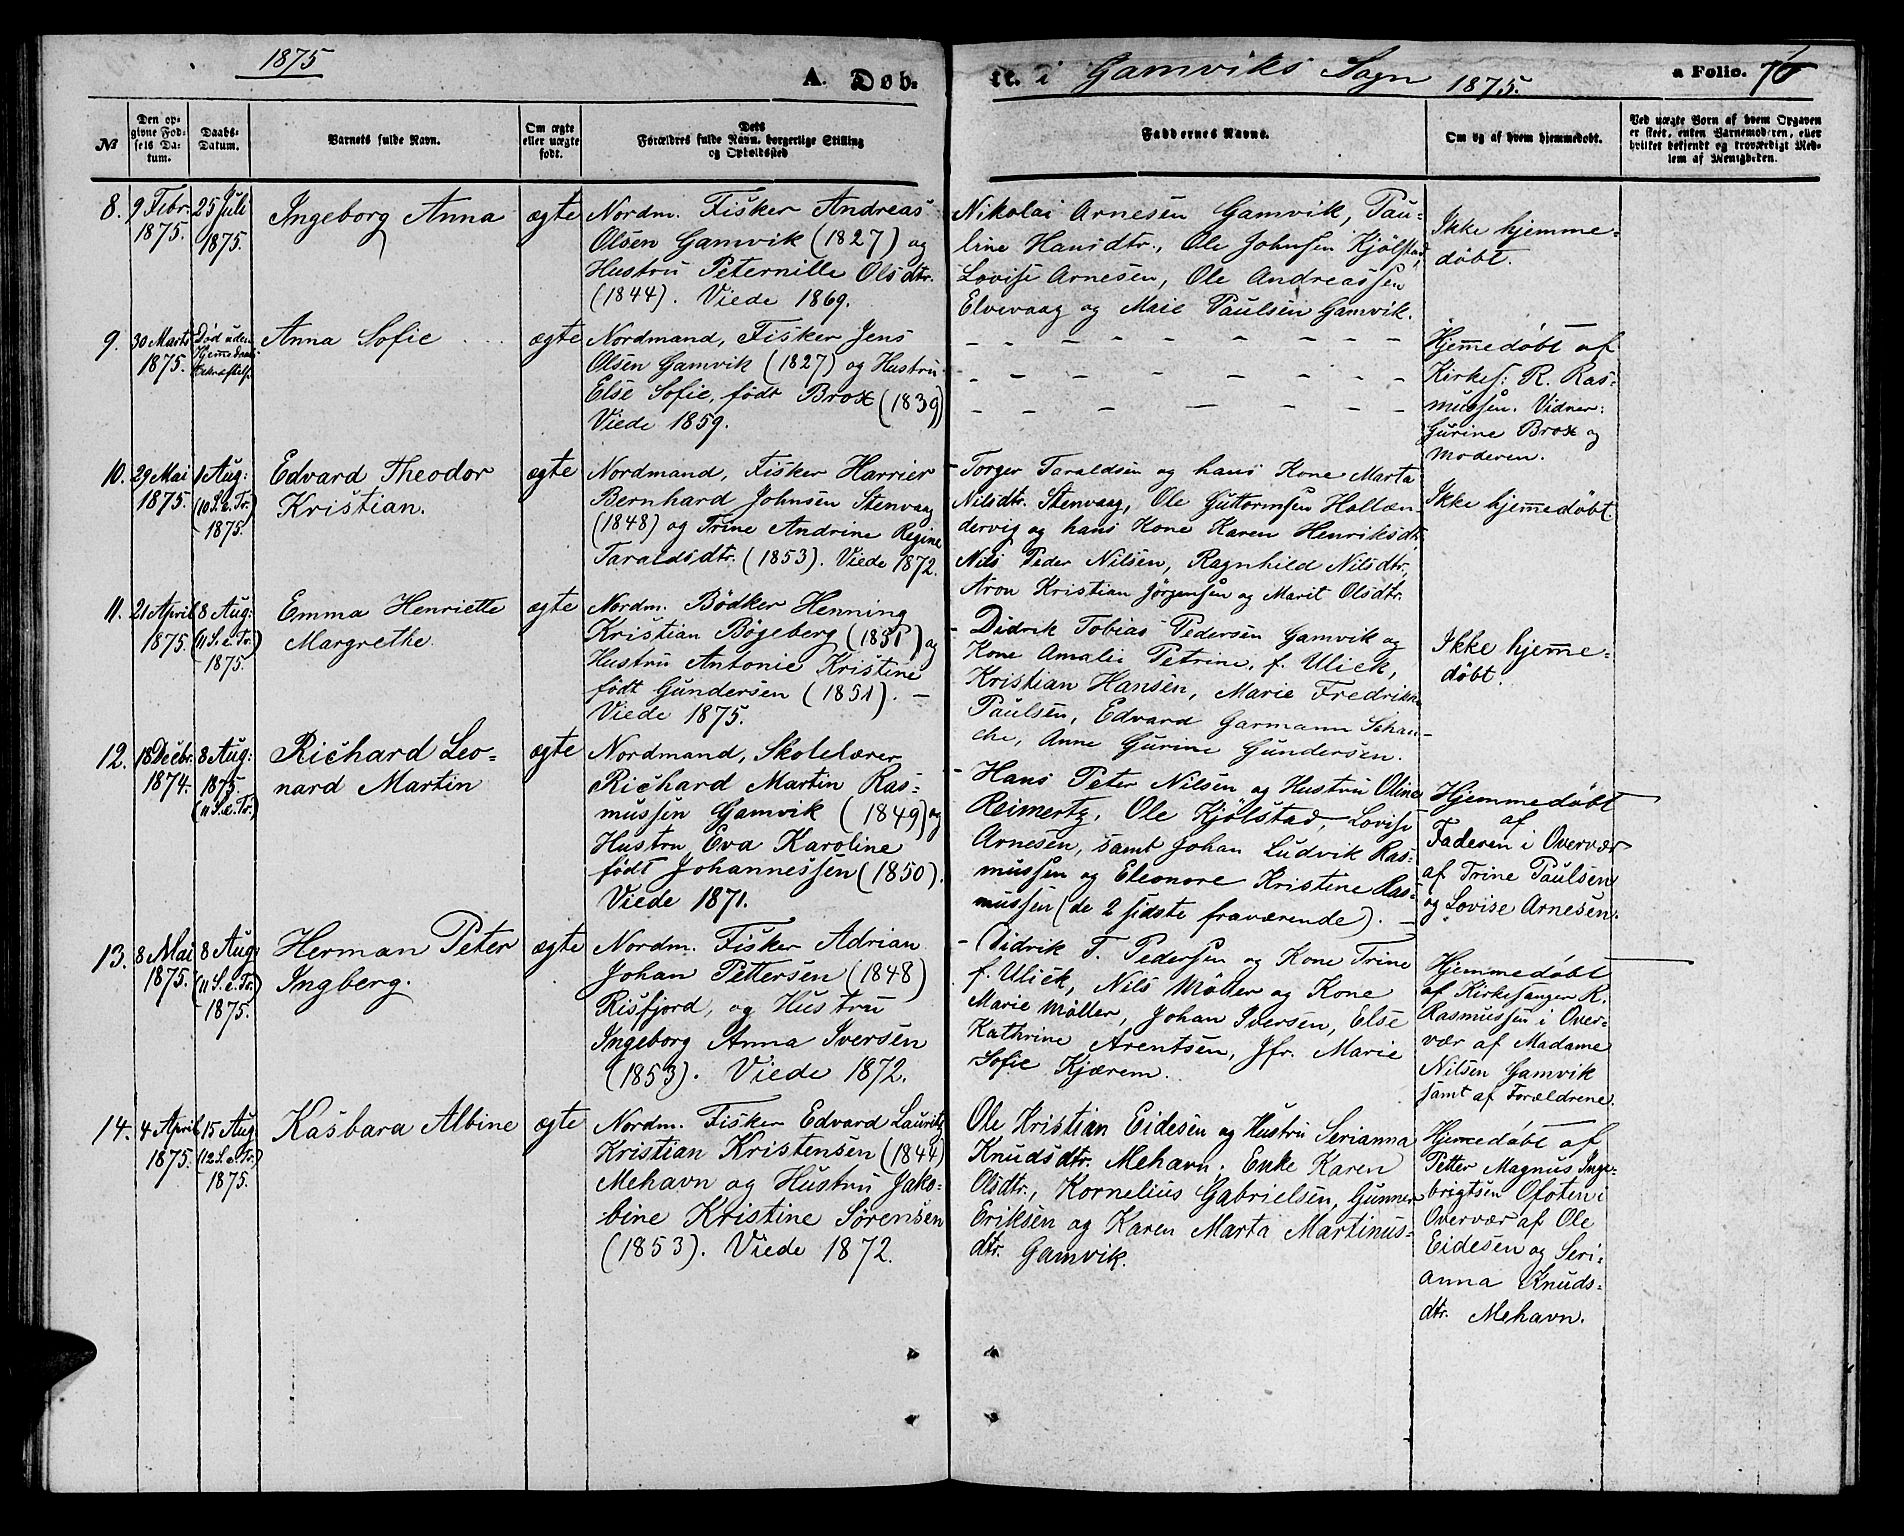 1875
A. Døb-
te. i Gamviks Sogn 1875.
a Folio. 76
№
Den op-
givne Fød-
sels Da-
tum.
Daabs-
Datum.
Barnets fulde Navn.
Om ægte
eller uægte
født.
Dets
Forældres fulde Navn, borgerlige Stilling
og Opholdssted
Faddernes Navne.
Om og af hvem hjemmedøbt.
Ved uægte Børn af hvem Opgaven
er skeet, enten Barnemoderen, eller
hvilket bekjendt og troværdigt Med-
lem af Menigheden.
8.
9 Febr.
1875.
25 Juli
1875.
Ingeborg Anna
ægte
Nordm. Fisker Andreas
Olsen Gamvik (1827) og
Hustru Peternille Olsdtr.
(1844). Viede 1869.
Nikolai Arnesen Gamvik, Pau-
line Hansdtr., Ole Johnsen Kjölstad,
Lovise Arnesen, Ole Andreassen
Elvevaag og Marie Paulsen Gamvik.
Ikke hjemme-
døbt.
9.
30 Marts
1875.
Død uden
Hjemmedaabs
Bekræftelse
Anna Sofie
ægte
Nordmand, Fisker Jens
Olsen Gamvik (1827) og Hustru
Else Sofie, født Brox (1839)
Viede 1859.
Hjemmedøbt af
Kirkes: R. Ras-
mussen. Vidner:
Gurine Brox og
Moderen.
10.
29 Mai
1875.
1 Aug:
(10 S. e. Tr.)
1875.
Edvard Theodor
Kristian.
ægte
Nordmand, Fisker Harrier
Bernhard Johnsen Stenvaag
(1848) og Trine Andrine Regine
Taraldsdtr. (1853). Viede 1872.
- Torger Taraldsen og hans Kone Marta
Nilsdtr. Stenvaag, Ole Guttormsen Hollæn-
dervig og hans Kone Karen Henriksdtr.
Nils Peder Nilsen, Ragnhild Nilsdtr.,
Aron Kristian Jörgensen og Marit Olsdtr.
Ikke hjemmedøbt.
11.
21 April
1875.
8 Aug:
(11 S. e. Tr.)
1875.
Emma Henriette
Margrethe.
ægte
Nordm. Bödker Henning
Kristian Bögeberg (1831) og
Hustru Antonie Kristine
født Gundersen (1851). -
Viede 1875.
- Didrik Tobias Pedersen Gamvik og
Kone Amalie Petrine, f. Ulick,
Kristian Hansen, Marie Fredrikke
Paulsen, Edvard Garmann Schan-
che, Anne Gurine Gundersen.
Ikke hjemme-
døbt.
12.
18 Decbr.
1874.
8 Aug:
1875.
(11 S. e. Tr.)
Richard Leo-
nard Martin
ægte
Nordmand, Skolelærer
Richard Martin Ras-
mussen Gamvik (1849) og
Hustru Eva Karoline
født Johannessen (1850).
Viede 1871.
- Hans Peter Nilsen og Hustru Oline
Reimertz, Ole Kjölstad, Lovise
Arnesen, samt Johan Ludvik Ras-
mussen og Eleonore Kristine Ras-
mussen (de 2 sidste fraværende). -
Hjemmedøbt
af
Faderen i Overvær
af Trine Paulsen
og Lovise Arnesen.
13.
8 Mai
1875.
8 Aug:
(11 S. e. Tr.)
1875.
Herman Peter
Ingberg.
ægte
Nordm. Fisker Adrian
Johan Pettersen (1848)
Risfjord, og Hustru
Ingeborg Anna Iversen
(1853). Viede 1872.
- Didrik T. Pedersen og Kone Trine
f. Ulick, Nils Möller og Kone
Marie Möller, Johan Iversen, Else
Kathrine Arentsen, Jfr. Marie
Sofie Kjærem.
Hjemmedøbt
af Kirkesanger R.
Rasmussen i Over-
vær af Madame
Nilsen Gamvik
samt af Forældrene.
14.
4 April
1875.
15 Aug.
(12 S. e. Tr.)
1875.
Kasbara Albine
ægte
Nordm. Fisker Edvard Lauritz
Kristian Kristensen (1844)
Mehavn og Hustru Jako-
bine Kristine Sörensen
(1853). Viede 1872.
Ole Kristian Eidesen og Hustru Serianna
Knudsdtr. Mehavn; Enke Karen
Olsdtr., Kornelius Gabrielsen, Gunner
Eriksen og Karen Marta Martinus-
dtr. Gamvik.
Hjemmedøbt af
Petter Magnus Inge-
brigtsen Ofoten i
Overvær af Ole
Eidesen og Seri-
anna Knuds-
dtr. Mehavn.